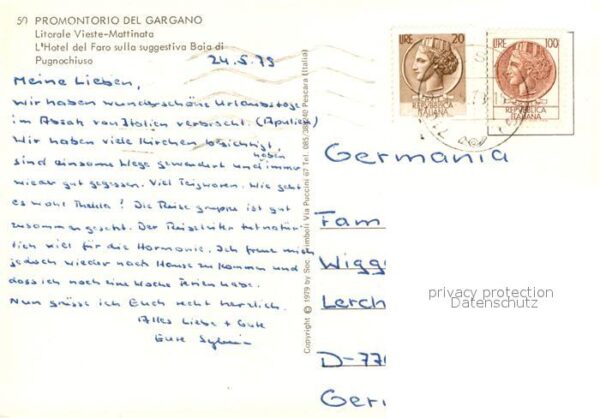 50 PROMONTORIO DEL GARGANO
Litorale Vieste-Mattinata
L'Hotel del Faro sulla suggestiva Baia di
Pugnochiuso
24.5.79
Meine Lieben,
wir haben wunderschöne Urlaubstage
im Absatz von Italien verbracht. (Apulien)
Wir haben viele Kirchen besichtigt,
sind einsame Wege gewandert und haben immer
wieder gut gegessen. Viel Teigwaren. Wie geht
es wohl Thekla? Die Reisegruppe ist gut
zusammengesetzt. Der Reiseleiter tut natür-
lich viel für die Harmonie. Ich freue mich
jedoch wieder nach Hause zu kommen und
dass ich noch eine Woche Ferien habe.
Nun grüsse ich Euch recht herzlich.
Alles Liebe + Gute
Eure Sylvia
Copyright © 1979 by Soc. Trimboli Via Puccini 67 Tel. 085/ Pescara (Italia)
LIRE 20
REPUBBLICA
ITALIANA
LIRE 100
REPUBBLICA
ITALIANA
Germania
Fam
Wigg
Lerch
D-77
Ger
privacy protection
Datenschutz